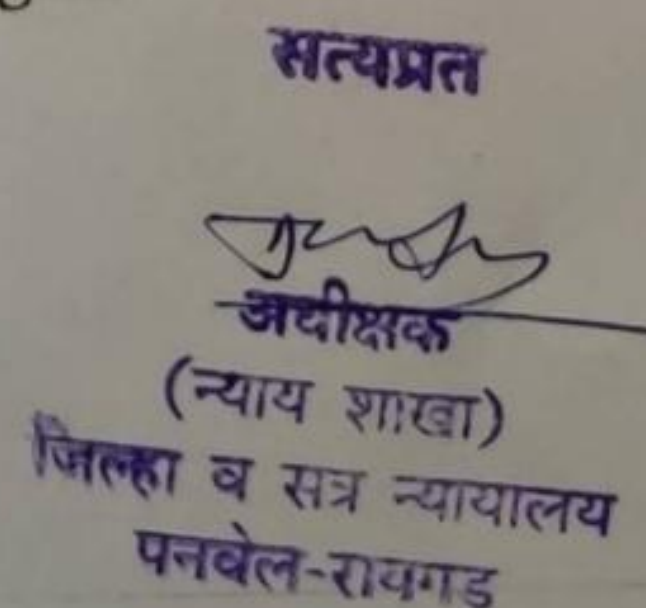 सत्यप्रत
अधीक्षक
(न्याय शाखा)
जिल्हा व सत्र न्यायालय
पनवेल-रायगड